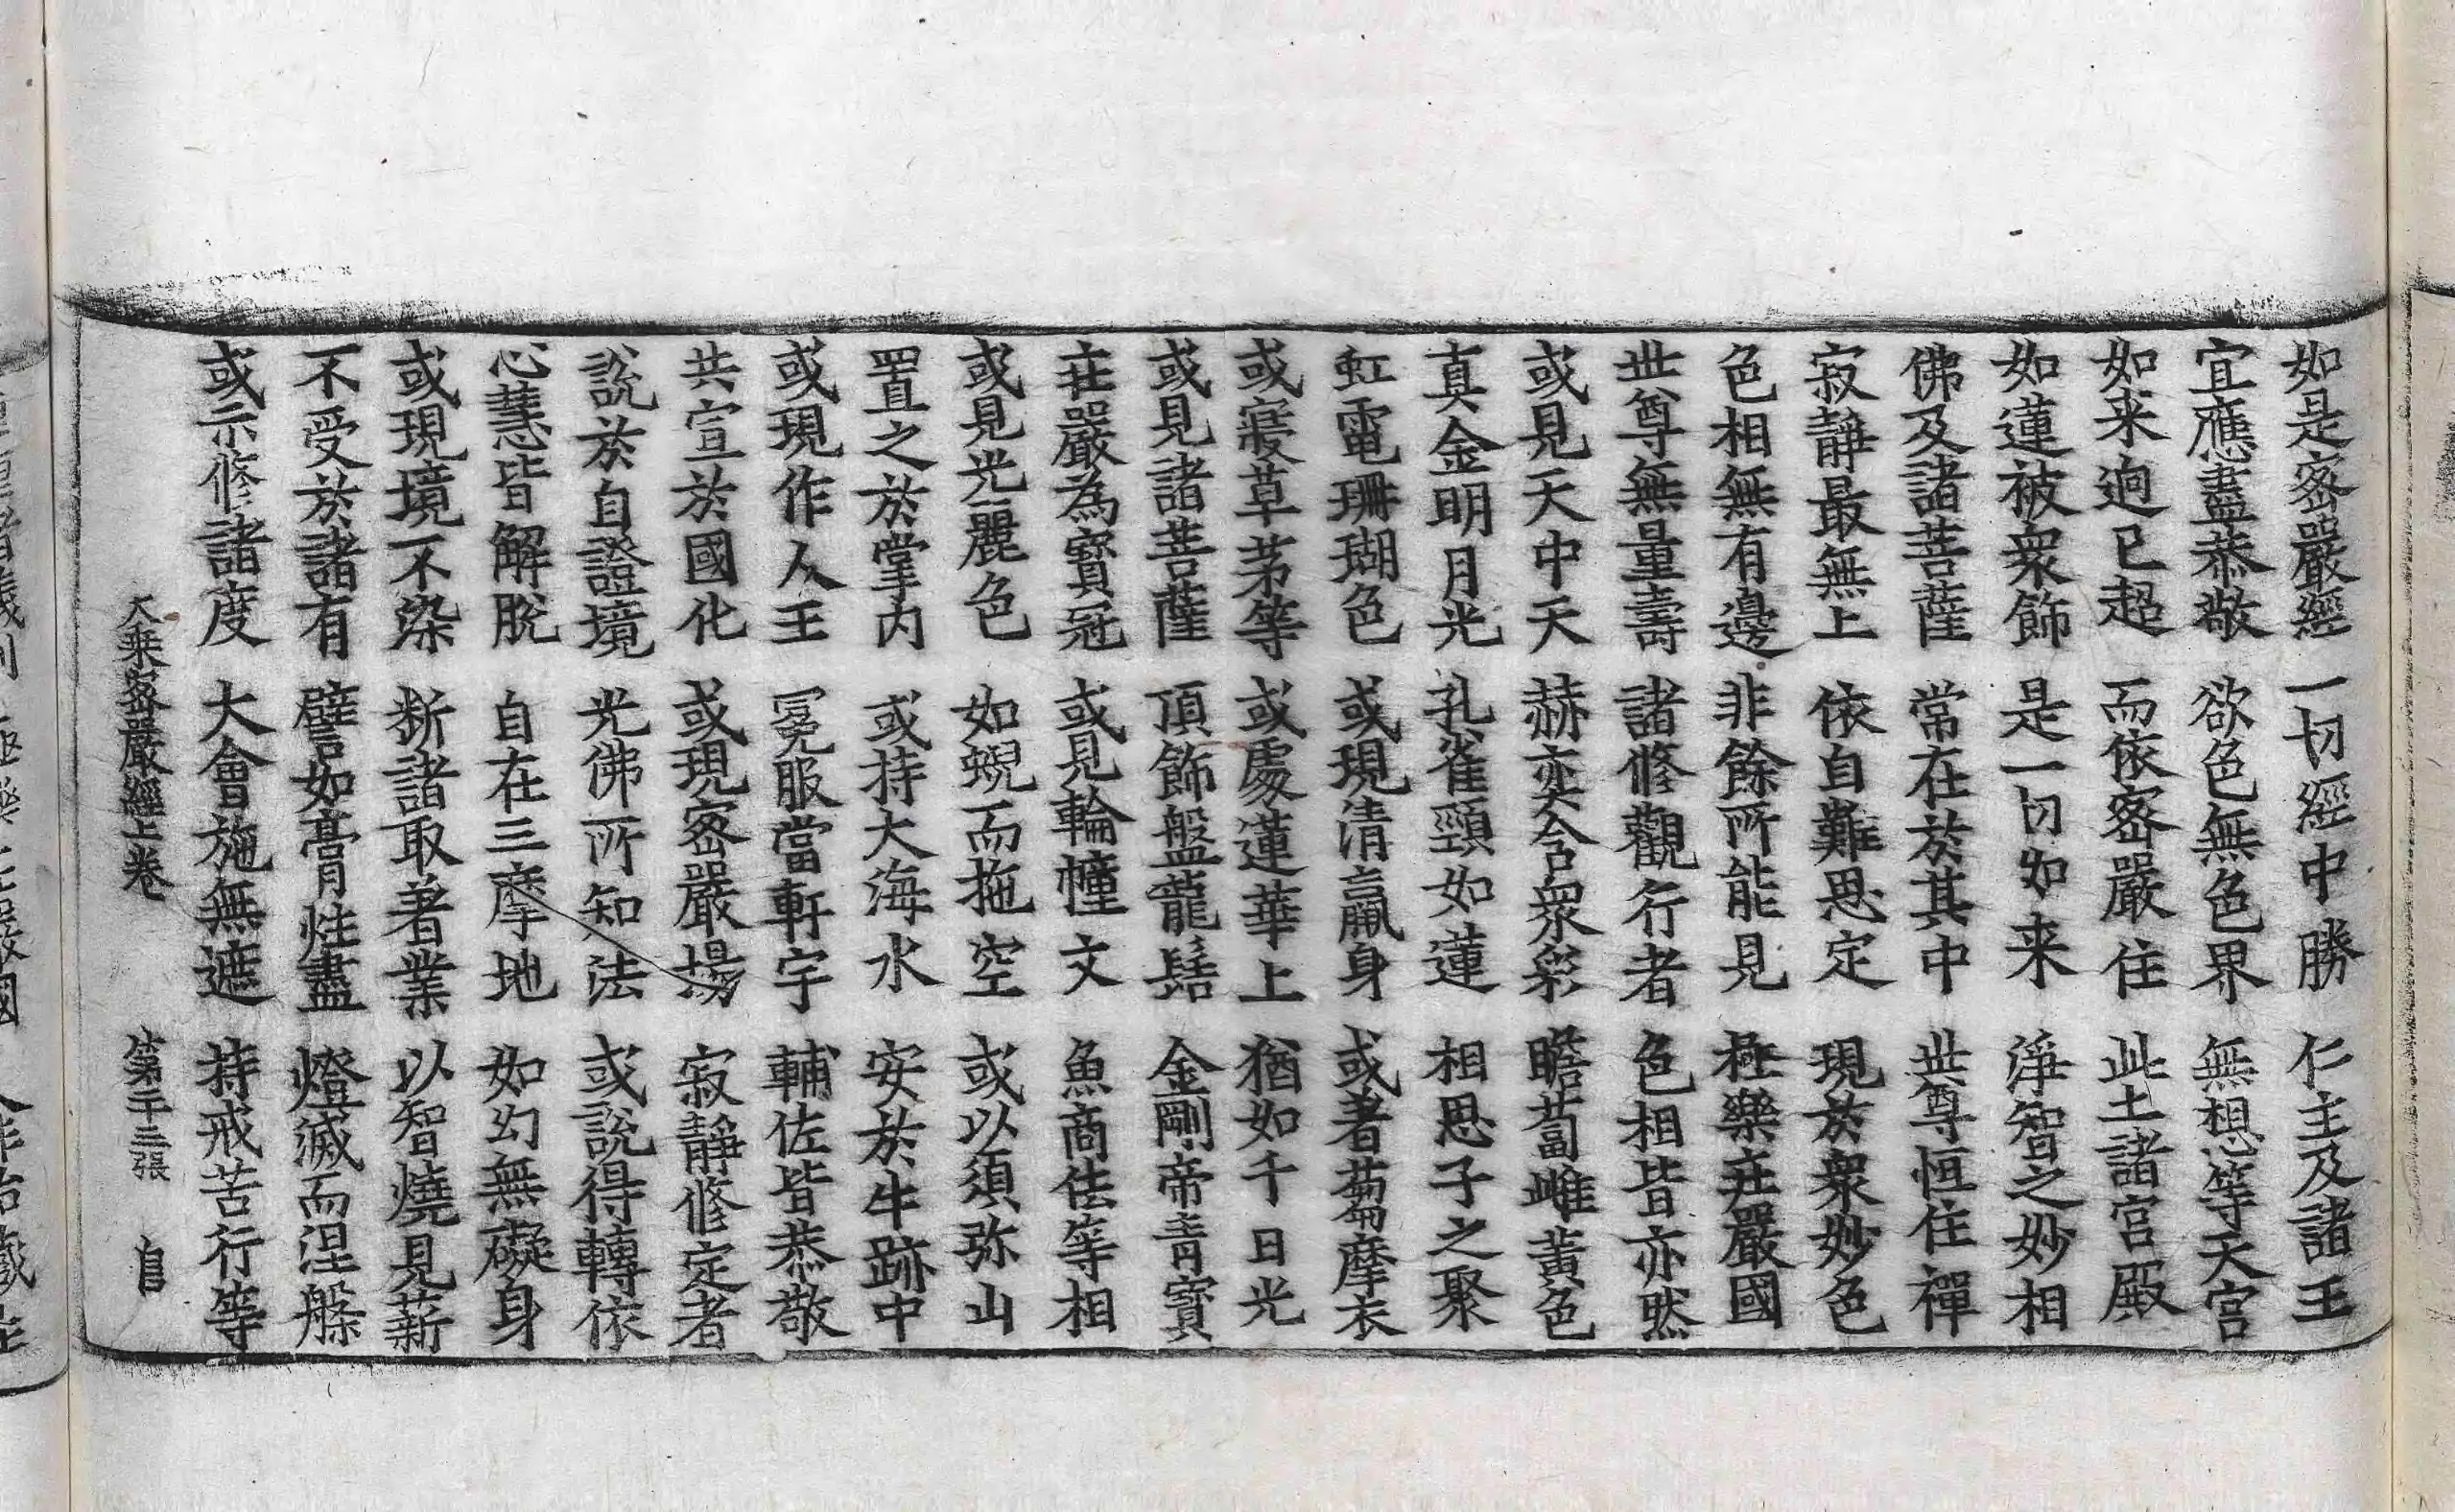 如是密嚴經　一切經中勝　仁主及諸王
宜應盡恭敬　欲色無色界　無想等天宮
如来逈已超　而依密嚴住　此土諸宮殿
如蓮被衆飾　是一切如来　淨智之妙相
佛及諸菩薩　常在於其中　世尊恒住禪
寂靜最無上　依自難思定　現於衆妙色
色相無有邊　非餘所能見　極樂莊嚴國
世尊無量壽　諸修觀行者　色相皆亦然
或見天中天　赫奕含衆彩　瞻蔔雌黃色
真金明月光　孔雀頸如蓮　相思子之聚
虹電珊瑚色　或現清羸身　或著蒭摩衣
或寢草茅等　或處蓮華上　猶如千日光
或見諸菩薩　頂飾盤龍髻　金剛帝青寶
莊嚴為寶冠　或見輪幢文　魚商佉等相
或見光麗色　如蜺而拖空　或以須弥山
置之於掌内　或持大海水　安於牛跡中
或現作人王　冕服當軒宇　輔佐皆恭敬
共宣於國化　或現密嚴場　寂靜修定者
說於自證境　光佛所知法　或說得轉依
心慧皆解脫　自在三摩地　如幻無礙身
或現境不染　断諸取著業　以智燒見薪
不受於諸有　譬如膏炷盡　燈滅而涅槃
或示修諸度　大會施無遮　持戒苦行等
大乘密嚴經上卷　第十三張　自